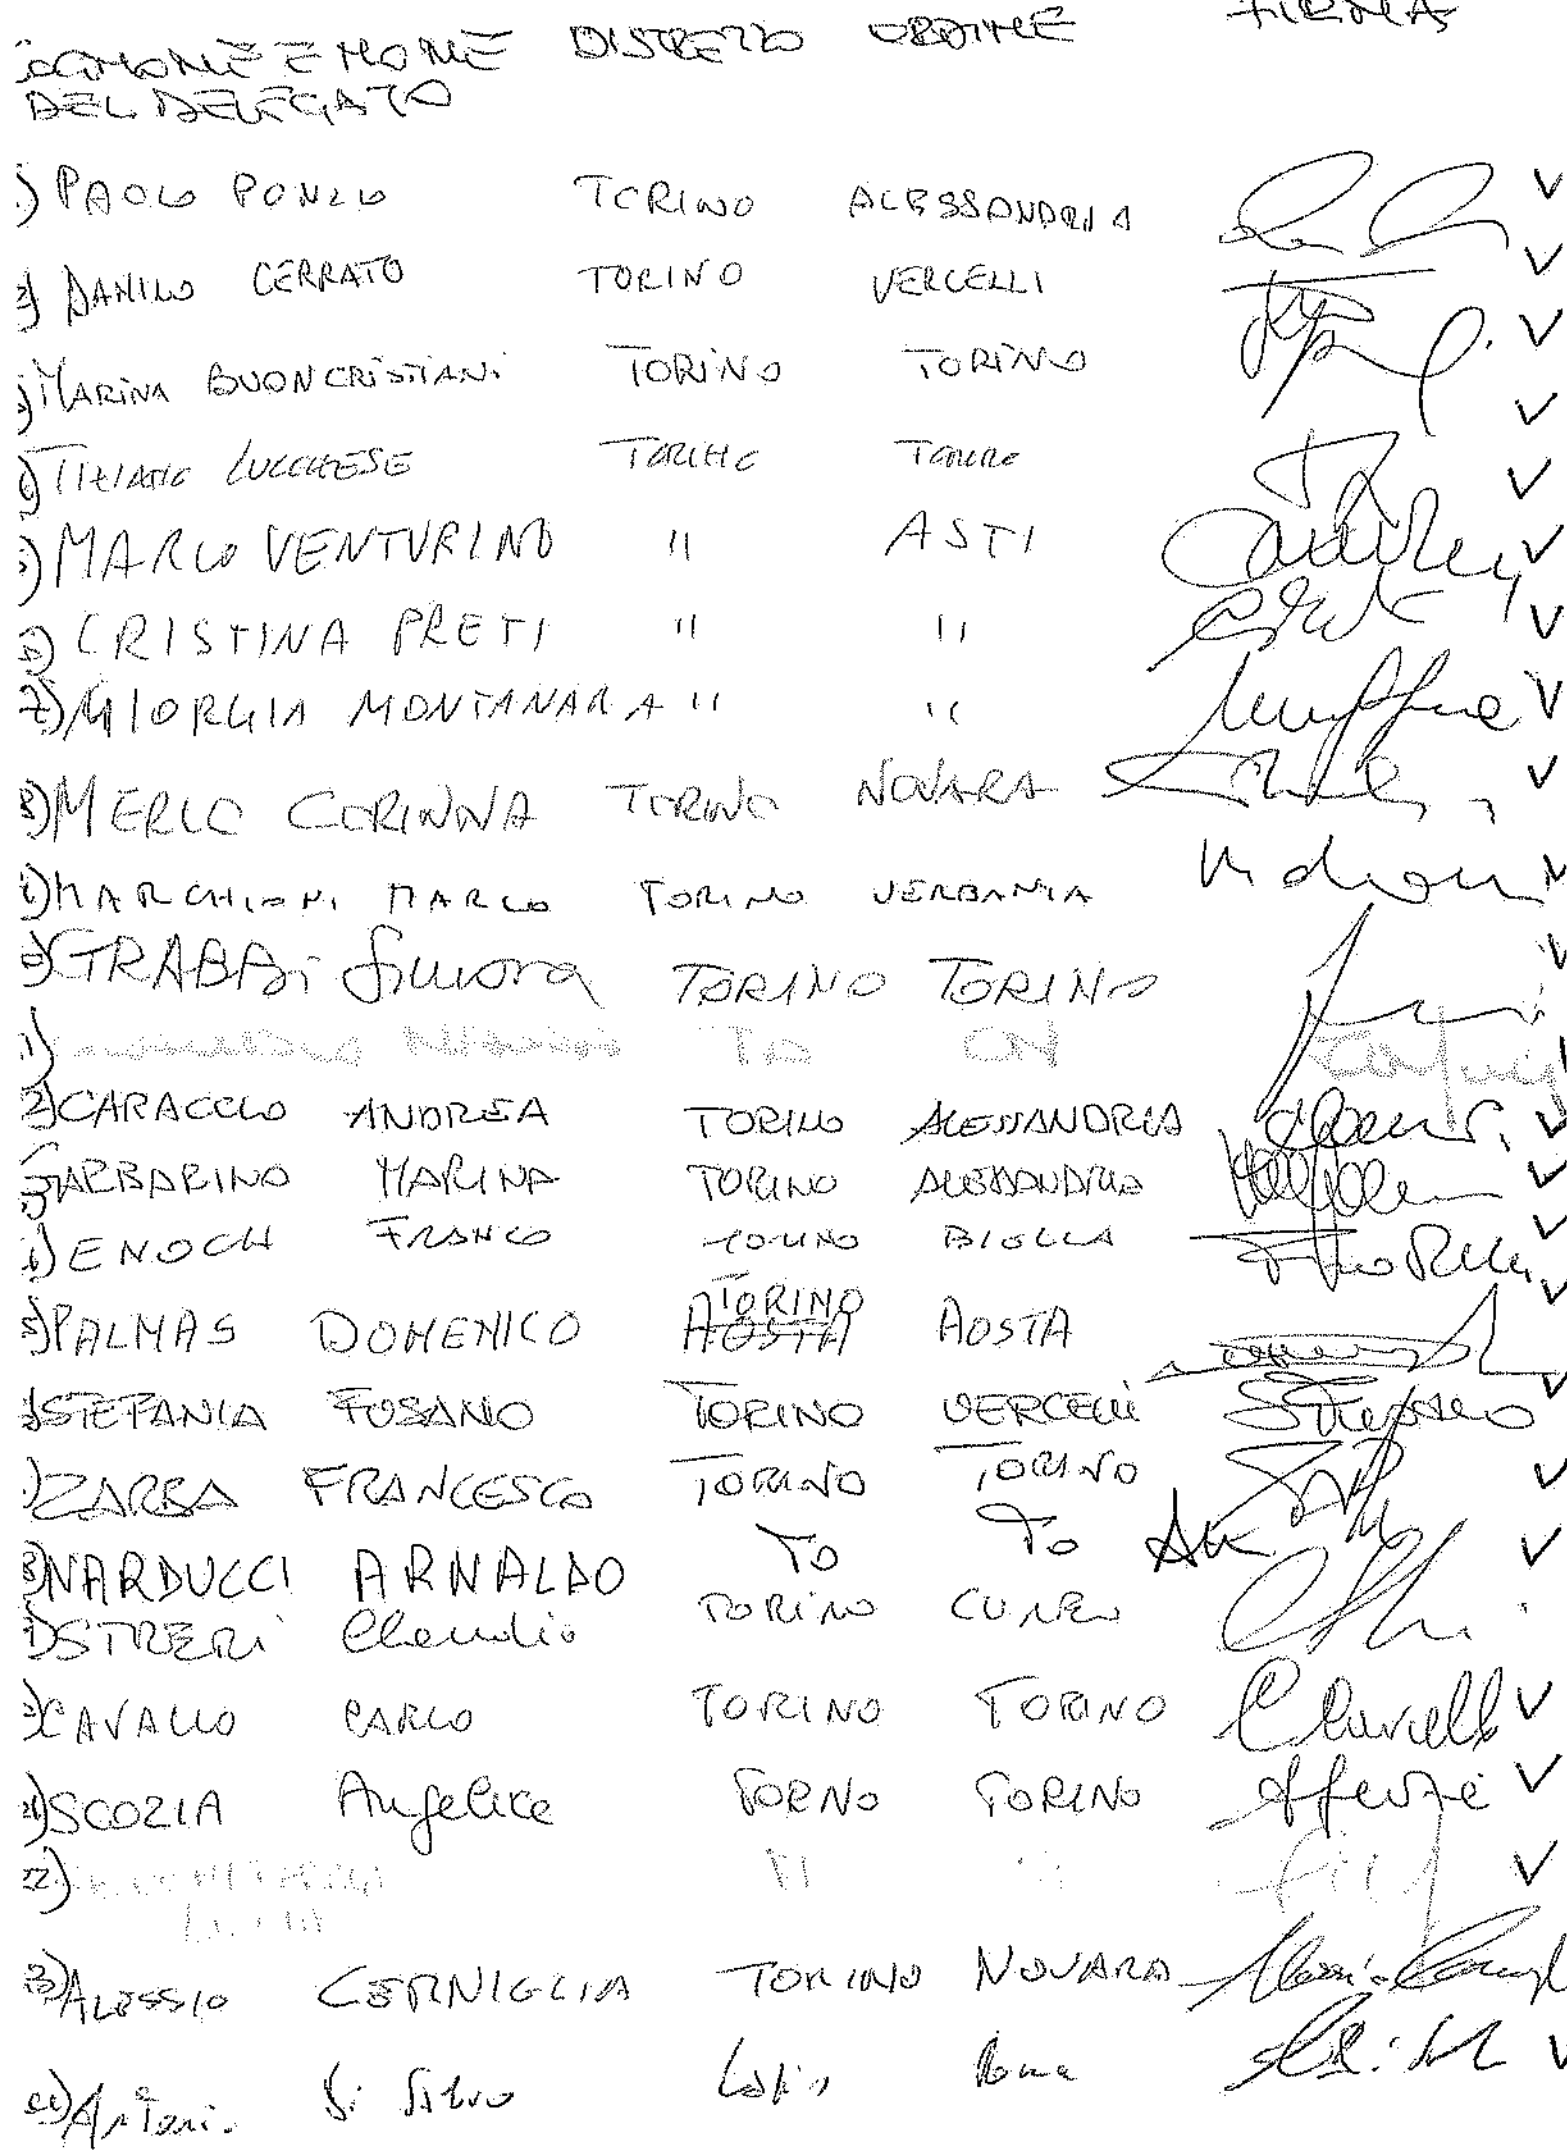 COGNOME E NOME DISTRETTO ORDINE FIRMA
DEL DELEGATO
1) PAOLO PONZIO TORINO ALESSANDRIA V
2) DANILO CERRATO TORINO VERCELLI V
3) MARINA BUONCRISTIANI TORINO TORINO V
4) TIZIANO LUCCHESE TORINO TORINO V
5) MARCO VENTURINO " ASTI V
6) CRISTINA PRETI " " V
7) GIORGIA MONTANARA " " V
8) MERLO CORINNA TORINO NOVARA V
9) MARCHIONI MARCO TORINO VERBANIA V
10) GRABBI Simona TORINO TORINO V
11) TO CN
12) CARACCIOLO ANDREA TORINO ALESSANDRIA V
13) BARBARINO MARINA TORINO ALESSANDRIA V
14) ENOCH FRANCO TORINO BIELLA V
15) PALMAS DOMENICO TORINO AOSTA V
16) STEFANIA FOSANO TORINO VERCELLI V
17) ZARBA FRANCESCO TORINO TORINO V
18) NARDUCCI ARNALDO TO TO V
19) STRERI Claudio TORINO CUNEO
20) CAVALLO CARLO TORINO TORINO V
21) SCOZIA Angelica TORINO TORINO V
22) V
23) ALESSIO CERNIGLIA TORINO NOVARA
24) Antoni. Di Silvio Roma V